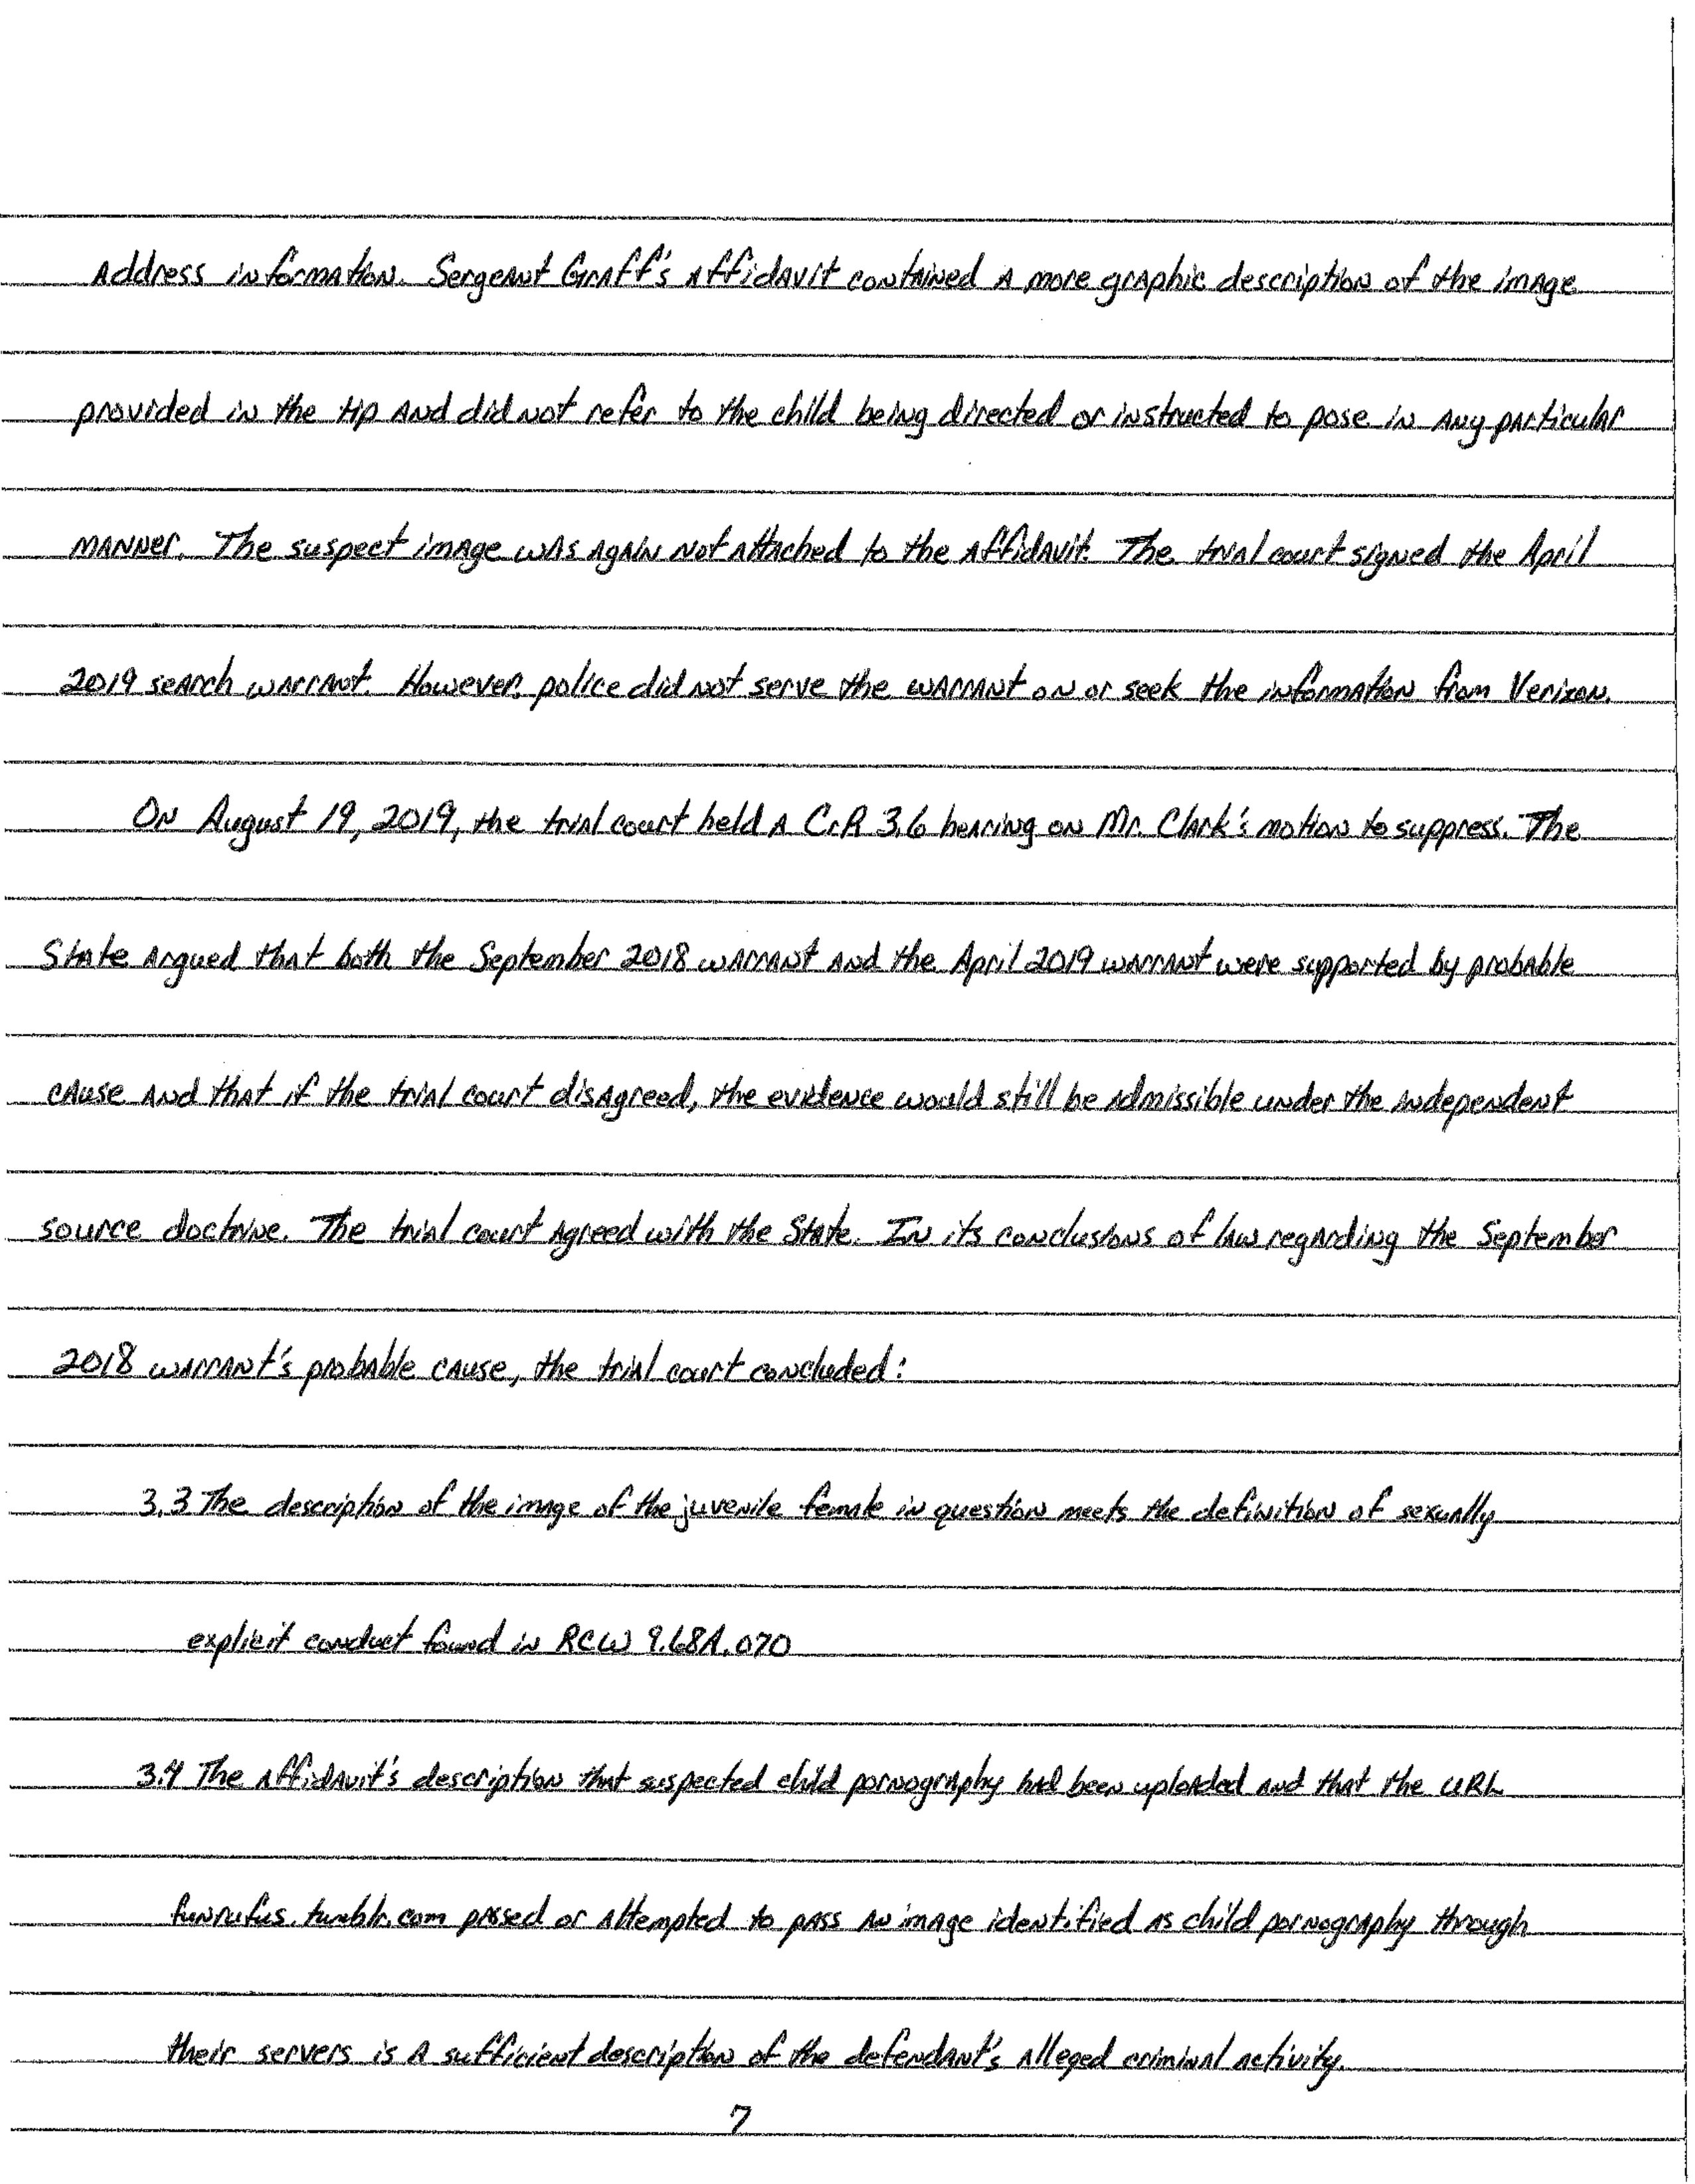 Address information. Sergeant Graff's affidavit contained a more graphic description of the image
provided in the tip and did not refer to the child being directed or instructed to pose in any particular
manner. The suspect image was again not attached to the affidavit. The trial court signed the April
2019 search warrant. However, police did not serve the warrant on or seek the information from Verizon.
On August 19, 2019, the trial court held a CrR 3.6 hearing on Mr. Clark's motion to suppress. The
State argued that both the September 2018 warrant and the April 2019 warrant were supported by probable
cause and that if the trial court disagreed, the evidence would still be admissible under the independent
source doctrine. The trial court agreed with the State. In its conclusions of law regarding the September
2018 warrant's probable cause, the trial court concluded:
3.3 The description of the image of the juvenile female in question meets the definition of sexually
explicit conduct found in RCW 9.68A.070
3.4 The affidavit's description that suspected child pornography had been uploaded and that the URL
funrufus.tumblr.com passed or attempted to pass an image identified as child pornography through
their servers is a sufficient description of the defendant's alleged criminal activity.
7